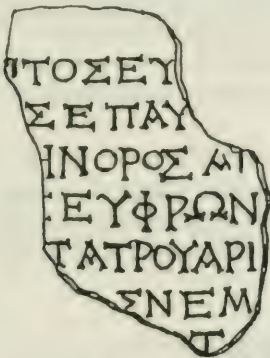 ΤΟΣΕΥ
ΣΕΠΑΥ
ΗΝΟΡΟΣΑΠ
ΕΥΦΡΩΝ
ΤΑΤΡΟΥΑΡΙ
ΣΝΕΜ
Τ